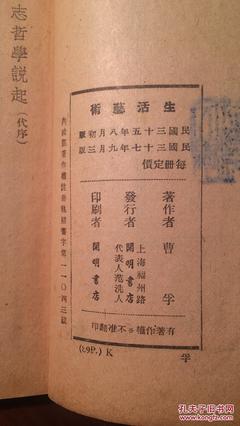 志哲學說起（代序）
生活藝術
民國三十五年八月初版
民國三十七年九月三版
每冊定價
著作者 曹 孚
發行者 上海福州路
開明書店
代表人范洗人
印刷者 開明書店
有著作權不准翻印
內政部著作權註冊執照警字第一一〇四三號
(29P.) K
孚